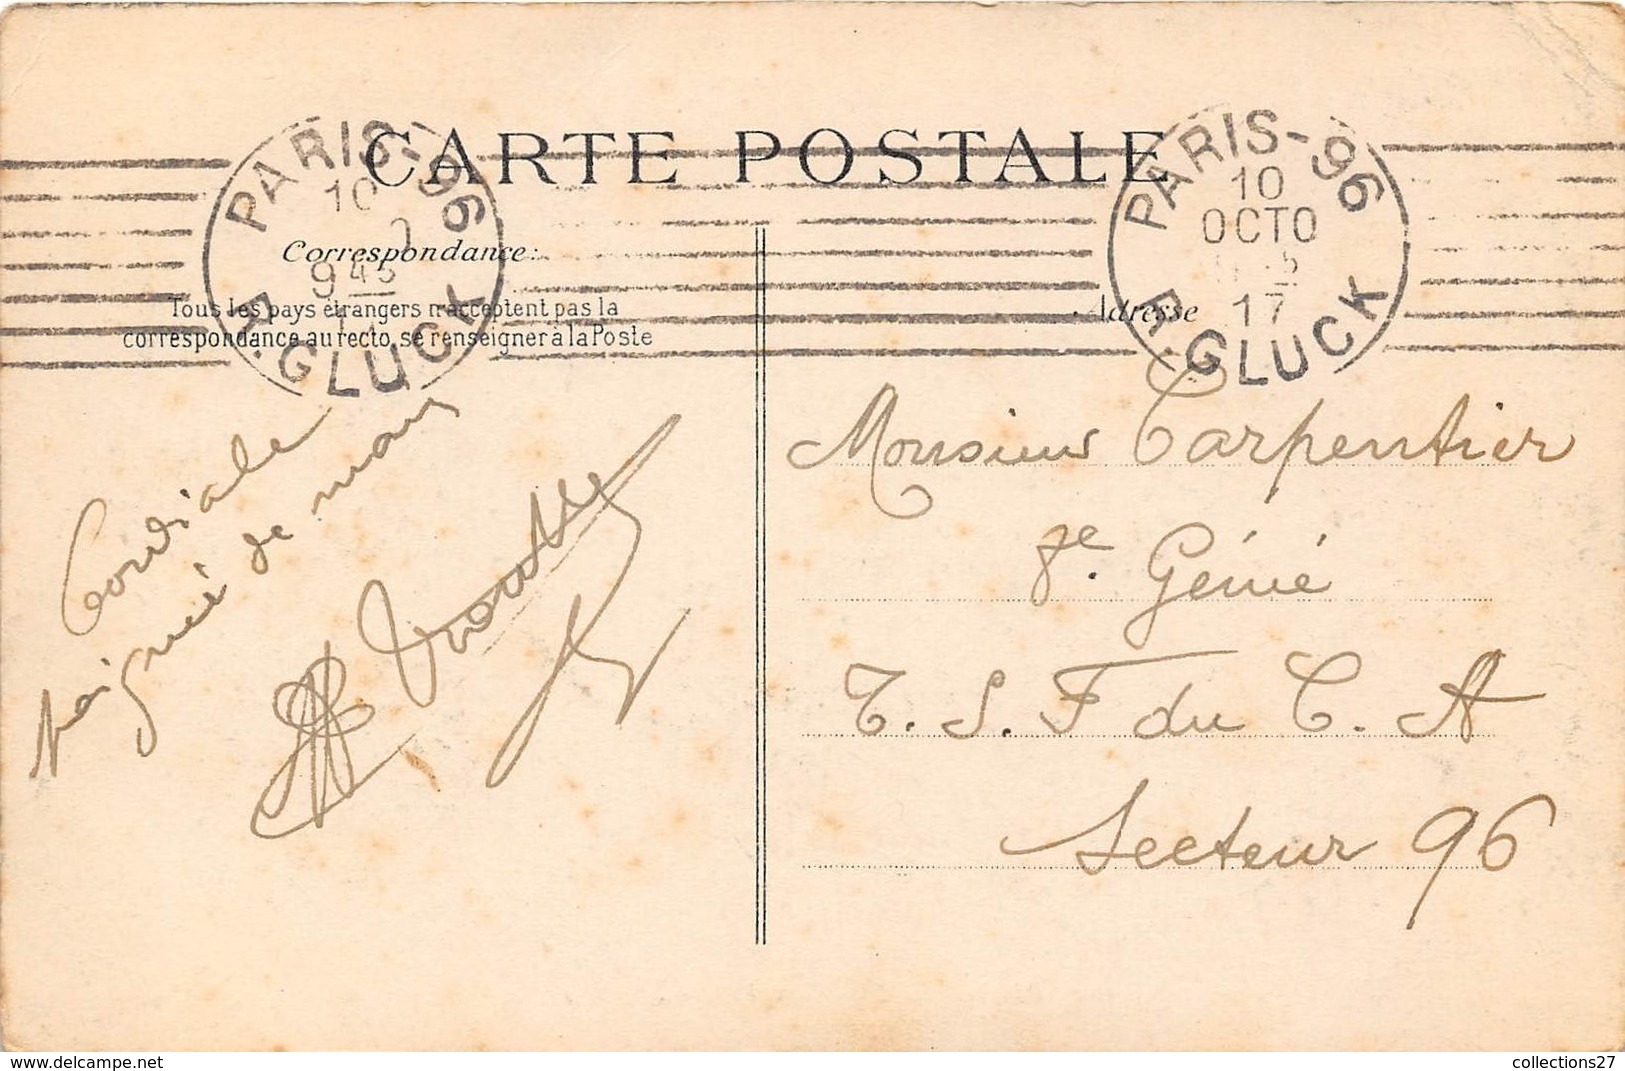 CARTE POSTALE
PARIS-96
10
9 45
R. GLUCK
PARIS-96
10
OCTO
17
R. GLUCK
Correspondance:
Tous les pays étrangers n'acceptent pas la
correspondance au recto, se renseigner à la Poste
Adresse
Cordiale
poignée de main
Monsieur Carpentier
8e. Génie
T. S. F du C. A
Secteur 96
https://www.delcampe.net
collections27